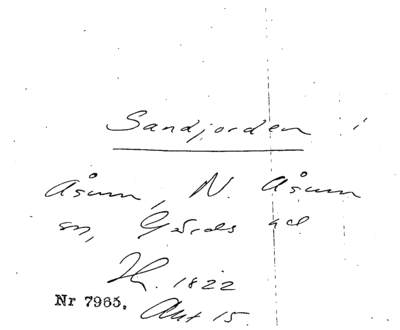 Sandjorden i
Åsum, N. Åsum
sn, Gärds hd
1822
Nr 7965.
Akt 15.